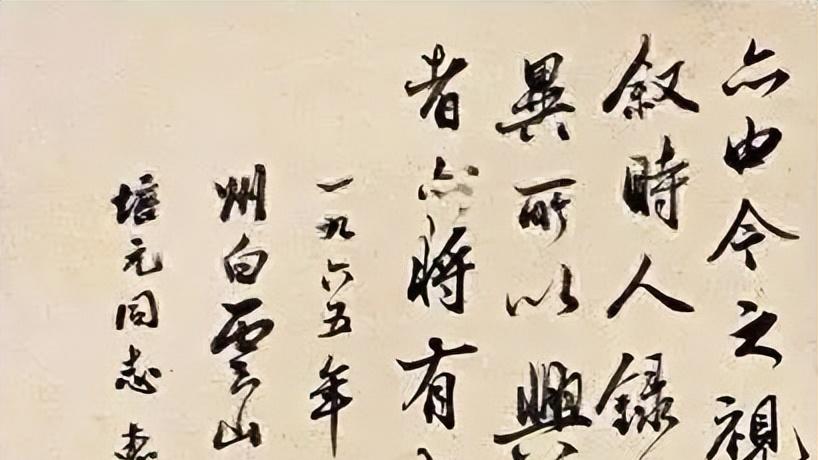 亦由今之視
叙時人録
異所以興
者亦將有
一九六五年
州白雲山
培元同志